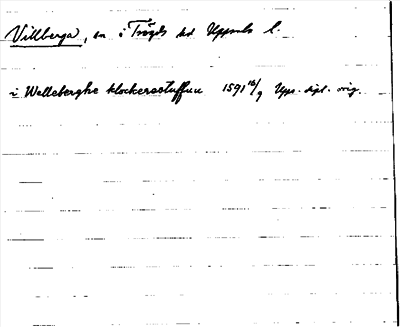 Villberga, sn i Trögds hd Uppsala l.
i Welleberghe klockerestuffuu 1591 16/9 Ups. dipl. orig.